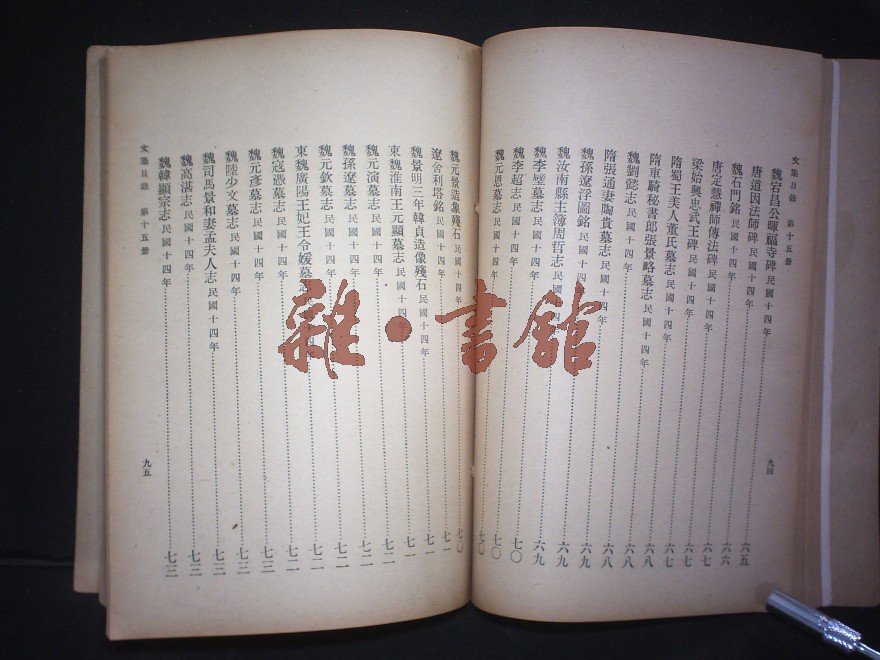 文集目錄 第十五册
魏宕昌公暉福寺碑 民國十四年 六五
唐道因法師碑 民國十四年 六五
魏石門銘 民國十四年 六六
唐定慧禪師傳法碑 民國十四年 六七
梁始興忠武王碑 民國十四年 六七
隋蜀王美人董氏墓志 民國十四年 六七
隋車騎秘書郎張景略墓志 民國十四年 六八
魏劉懿志 民國十四年 六八
隋張通妻陶貴墓志 民國十四年 六八
魏孫遼浮圖銘 民國十四年 六九
魏汝南縣主簿周哲志 民國十四年 六九
魏李璧墓志 民國十四年 六九
魏李超志 民國十四年 七〇
魏元恩墓志 民國十四年 七〇
九四
魏元景造象殘石 民國十四年 七〇
遼舍利塔銘 民國十四年 七一
魏景明三年韓貞造像殘石 民國十四年 七一
東魏淮南王元顯墓志 民國十四年 七一
魏元演墓志 民國十四年 七二
魏孫遼墓志 民國十四年 七二
魏元欽墓志 民國十四年 七二
東魏廣陽王妃王令媛墓志 民國十四年 七二
魏寇憑墓志 民國十四年 七三
魏元彥墓志 民國十四年 七三
魏陸少文墓志 民國十四年 七三
魏司馬景和妻孟夫人志 民國十四年 七三
魏高湛志 民國十四年 七三
魏韓顯宗志 民國十四年 七三
文集目錄 第十五册
九五
雜·書館